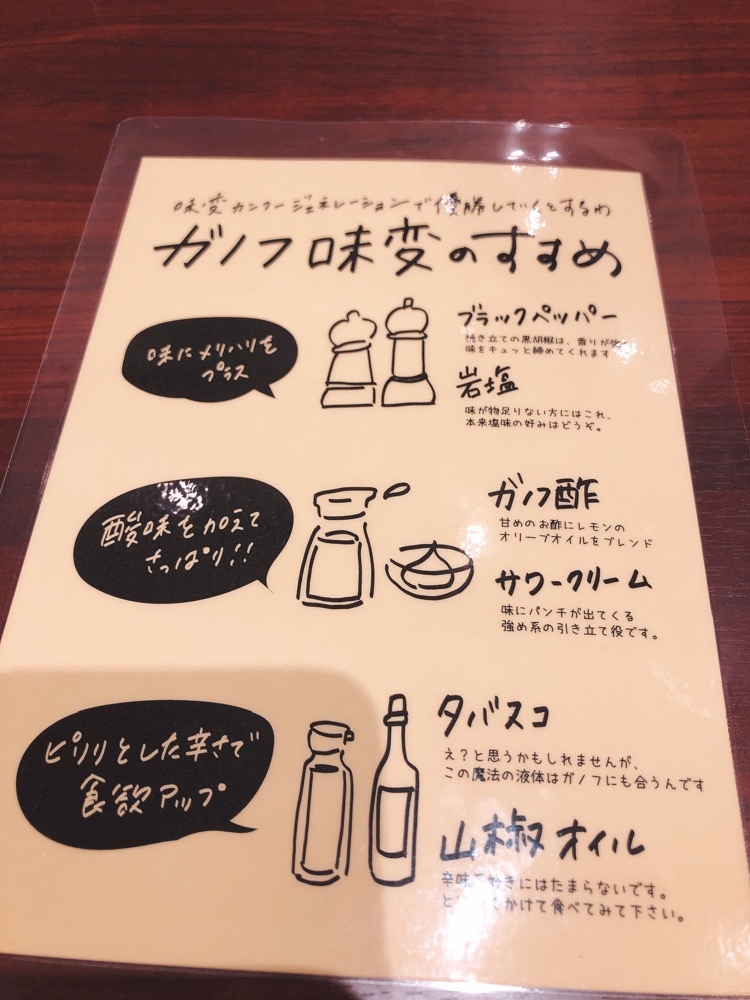 味変カンフージェネレーションで優勝していくとするわ
ガノフ味変のすすめ
味にメリハリを
プラス
ブラックペッパー
挽き立ての黒胡椒は、香りが
味をキュッと締めてくれます
岩塩
味が物足りない方にはこれ、
本来塩味の好みはどうぞ。
酸味を加えて
さっぱり!!
ガノフ酢
甘めのお酢にレモンの
オリーブオイルをブレンド
サワークリーム
味にパンチが出てくる
強め系の引き立て役です。
ピリリとした辛さで
食欲アップ
タバスコ
え？と思うかもしれませんが、
この魔法の液体はガノフにも合うんです
山椒オイル
辛味好きにはたまらないです。
かけて食べてみて下さい。